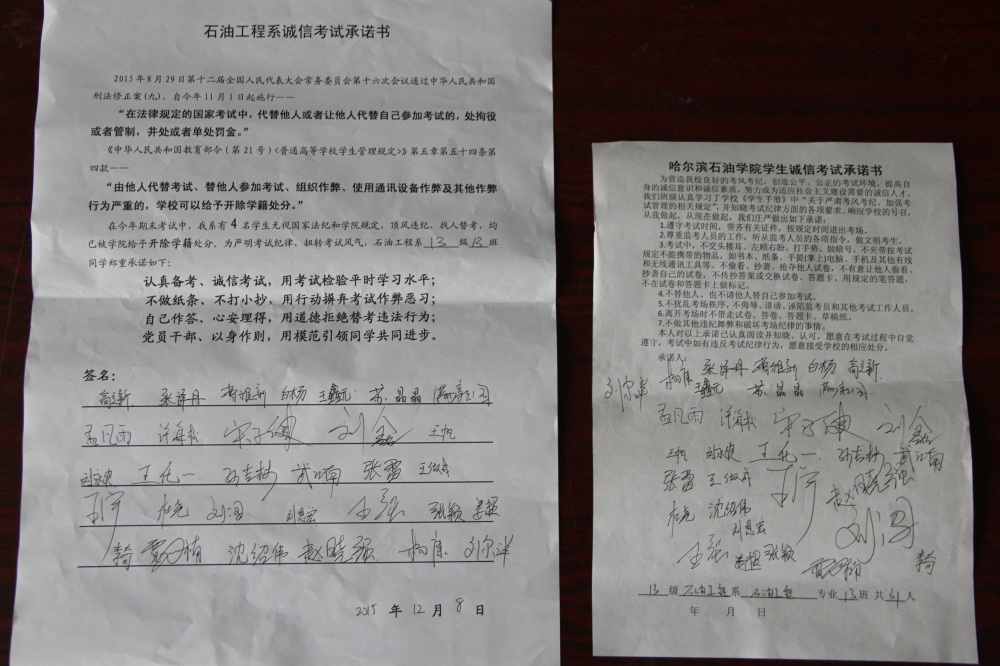 石油工程系诚信考试承诺书
2015年8月29日第十二届全国人民代表大会常务委员会第十六次会议通过中华人民共和国
刑法修正案(九),自今年11月1日起施行——
“在法律规定的国家考试中,代替他人或者让他人代替自己参加考试的,处拘役
或者管制,并处或者单处罚金。”
《中华人民共和国教育部令(第21号)<普通高等学校学生管理规定>》第五章第五十四条第
四款——
“由他人代替考试、替他人参加考试、组织作弊、使用通讯设备作弊及其他作弊
行为严重的,学校可以给予开除学籍处分。”
在今年期末考试中,我系有4名学生无视国家法纪和学院规定,顶风违纪,找人替考,均
已被学院给予开除学籍处分。为严明考试纪律,扭转考试风气,石油工程系13级13班
同学郑重承诺如下:
认真备考、诚信考试,用考试检验平时学习水平;
不做纸条、不打小抄,用行动摒弃考试作弊恶习;
自己作答、心安理得,用道德拒绝替考违法行为;
党员干部、以身作则,用模范引领同学共同进步。
签名:
白杨 王鑫元 苏晶晶
孟凡雨 许海松 宋子健 刘鑫 王帆
王化一 孙吉彬 武江南 张雷
杜克 刘洄 刘思宏 王强 张颖 姜超
沈绍伟 赵晓强 杨康 刘尔洋
2015年12月8日
哈尔滨石油学院学生诚信考试承诺书
为营造我校良好的考风考纪,创造公平、公正的考试环境,提高自
身的诚信意识和诚信素质,努力成为适应社会主义建设需要的诚信人才,
我们班级认真学习了学校《学生手册》中“关于严肃考风考纪,加强考
试管理的相关规定”,并知晓考试纪律方面的各项要求,响应学校的号召,
从我做起,从现在做起,我们庄严做出如下承诺:
1.遵守考试时间,带齐有关证件,按规定时间进出考场。
2.尊重监考人员的工作,听从监考人员的各项指令,做文明考生。
3.考试中,不交头接耳、左顾右盼、打手势、做暗号,不夹带按考试
规定不能携带的物品,如书本、纸条、手提(掌上)电脑、手机及其他有线
和无线通讯工具等,不偷看、抄袭、抢夺他人试卷,不有意让他人偷看、
抄袭自己的试卷,不传抄答案或交换试卷、答题卡,用规定的笔答题,
不在试卷和答题卡上做标记。
4.不替他人,也不请他人替自己参加考试。
5.不扰乱考场秩序,不侮辱、诽谤、诬陷监考员和其他考试工作人员。
6.离开考场时不带走试卷、答卷、答题卡、草稿纸。
7.不做其他违纪舞弊和破坏考场纪律的事情。
本人对以上承诺已认真阅读并知晓、认可,愿意在考试过程中自觉
遵守,考试中如有违反考试纪律行为,愿意接受学校的相应处分。
承诺人:
刘尔洋 杨康 白杨
王鑫元 苏晶晶
孟凡雨 许海松 宋子健 刘鑫
王帆 王化一 孙吉彬 武江南
张雷 赵晓强
杜克 沈绍伟 刘洄
刘思宏
王强 姜超 张颖
13级石油工程系石油工程专业13班共31人
年 月 日